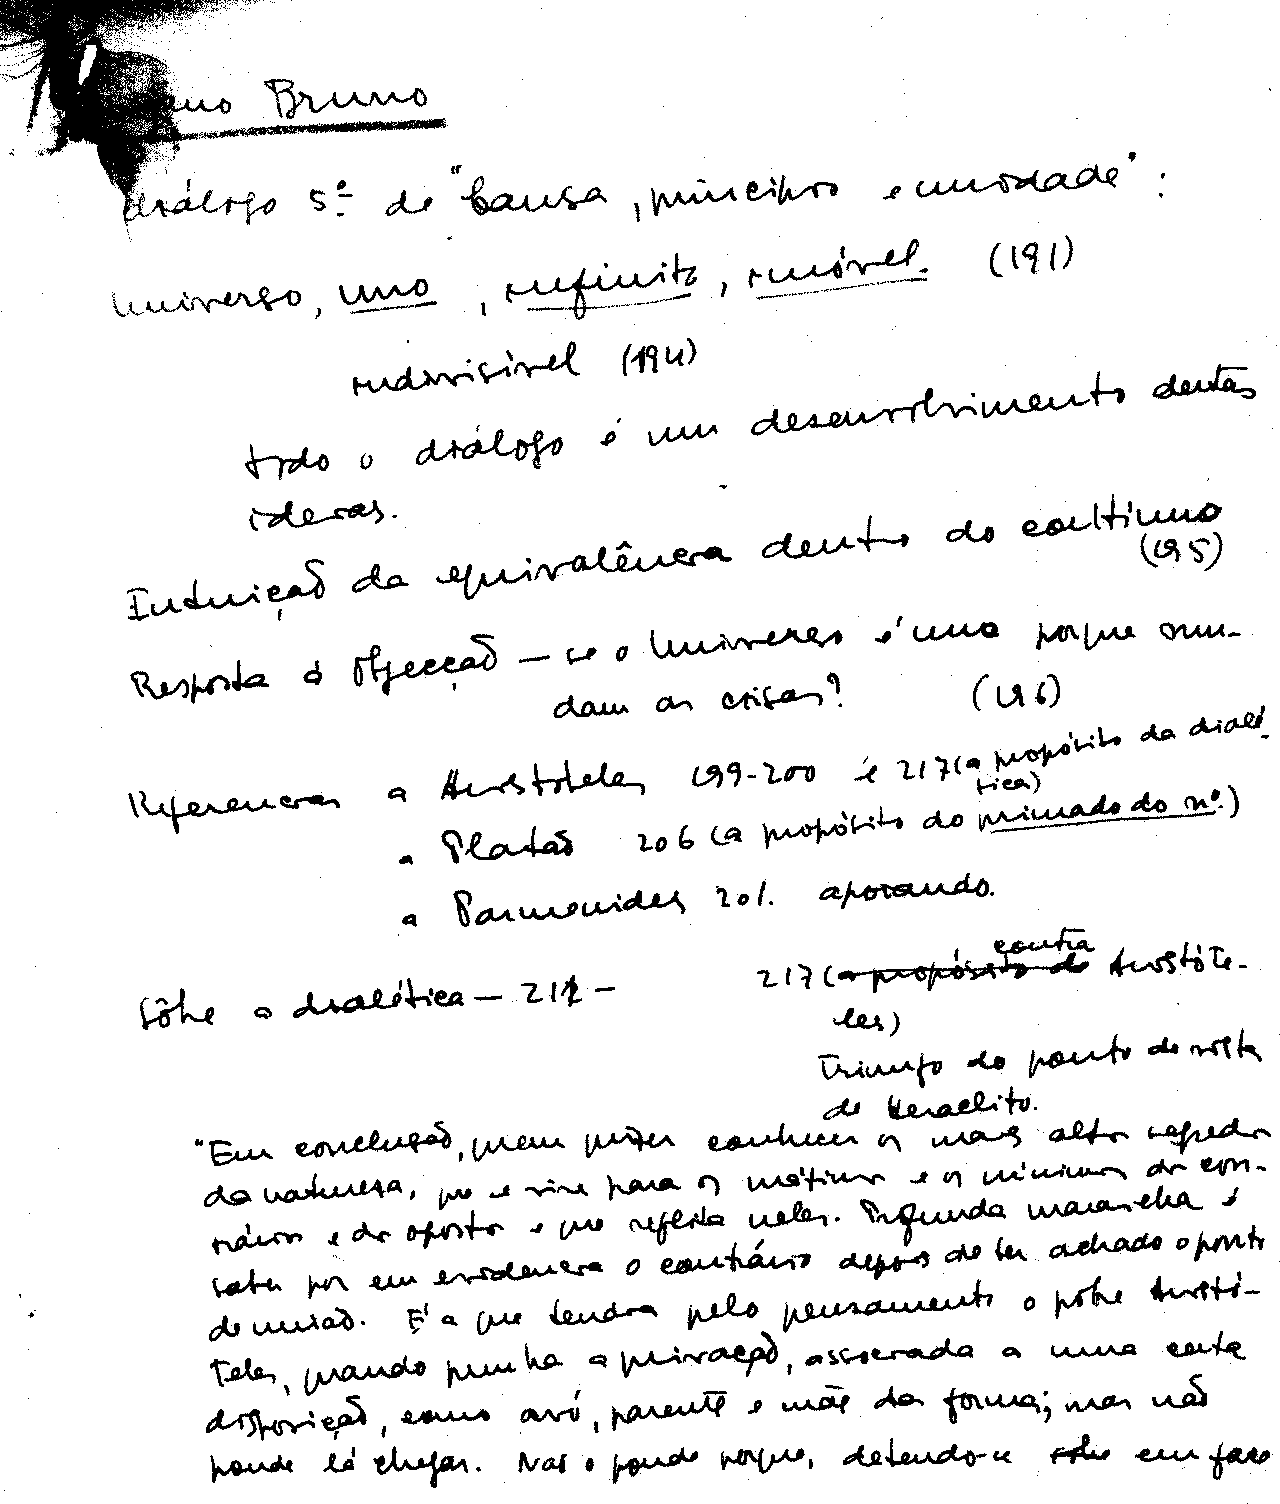 Bruno
diálogo 5º de "Causa, princípio e unidade":
Universo, uno, infinito, imóvel. (191)
indivisível (194)
todo o diálogo é um desenvolvimento destas
ideias.
Intuição da equivalência dentro do contínuo
(195)
Resposta à objecção – se o Universo é uno porque mu-
dam as coisas? (196)
Referencias a Aristoteles 199-200 e 217 (a propósito da dialé-
tica)
a Platão 206 (a propósito do primado do nº.)
a Parmenides 201. apoiando.
Sôbre a dialética – 211 – 217 (a propósito de contra Aristóte-
les)
Triunfo do ponto de vista
de Heraclito.
"Em conclusão, quem quizer conhecer os mais altos segredos
da natureza, que se vire para os máximos e os mínimos dos con-
trários e dos opostos e que reflita neles. Profunda maravilha é
saber por em evidencia o contrário depois de ter achado o ponto
de união. É a que tendia pelo pensamento o pobre Aristó-
teles, quando punha a privação, associada a uma certa
disposição, como avó, parente e mãe da forma; mas não
poude lá chegar. Não o poude porque, detendo-se sobre em face